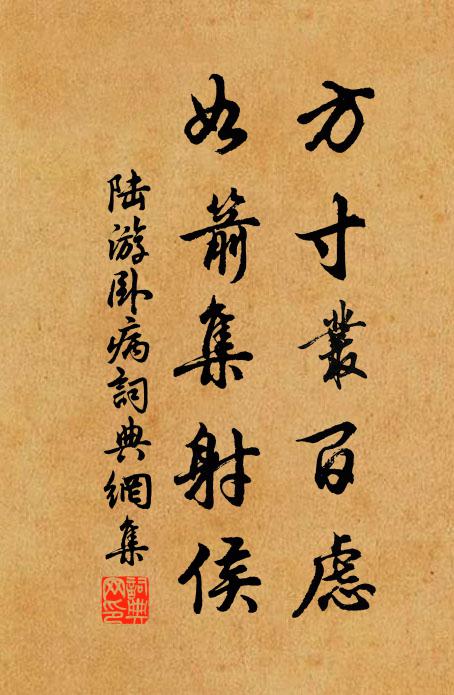 方寸叢百慮
如箭集射侯
陸游卧病詞典網集
詞典網印